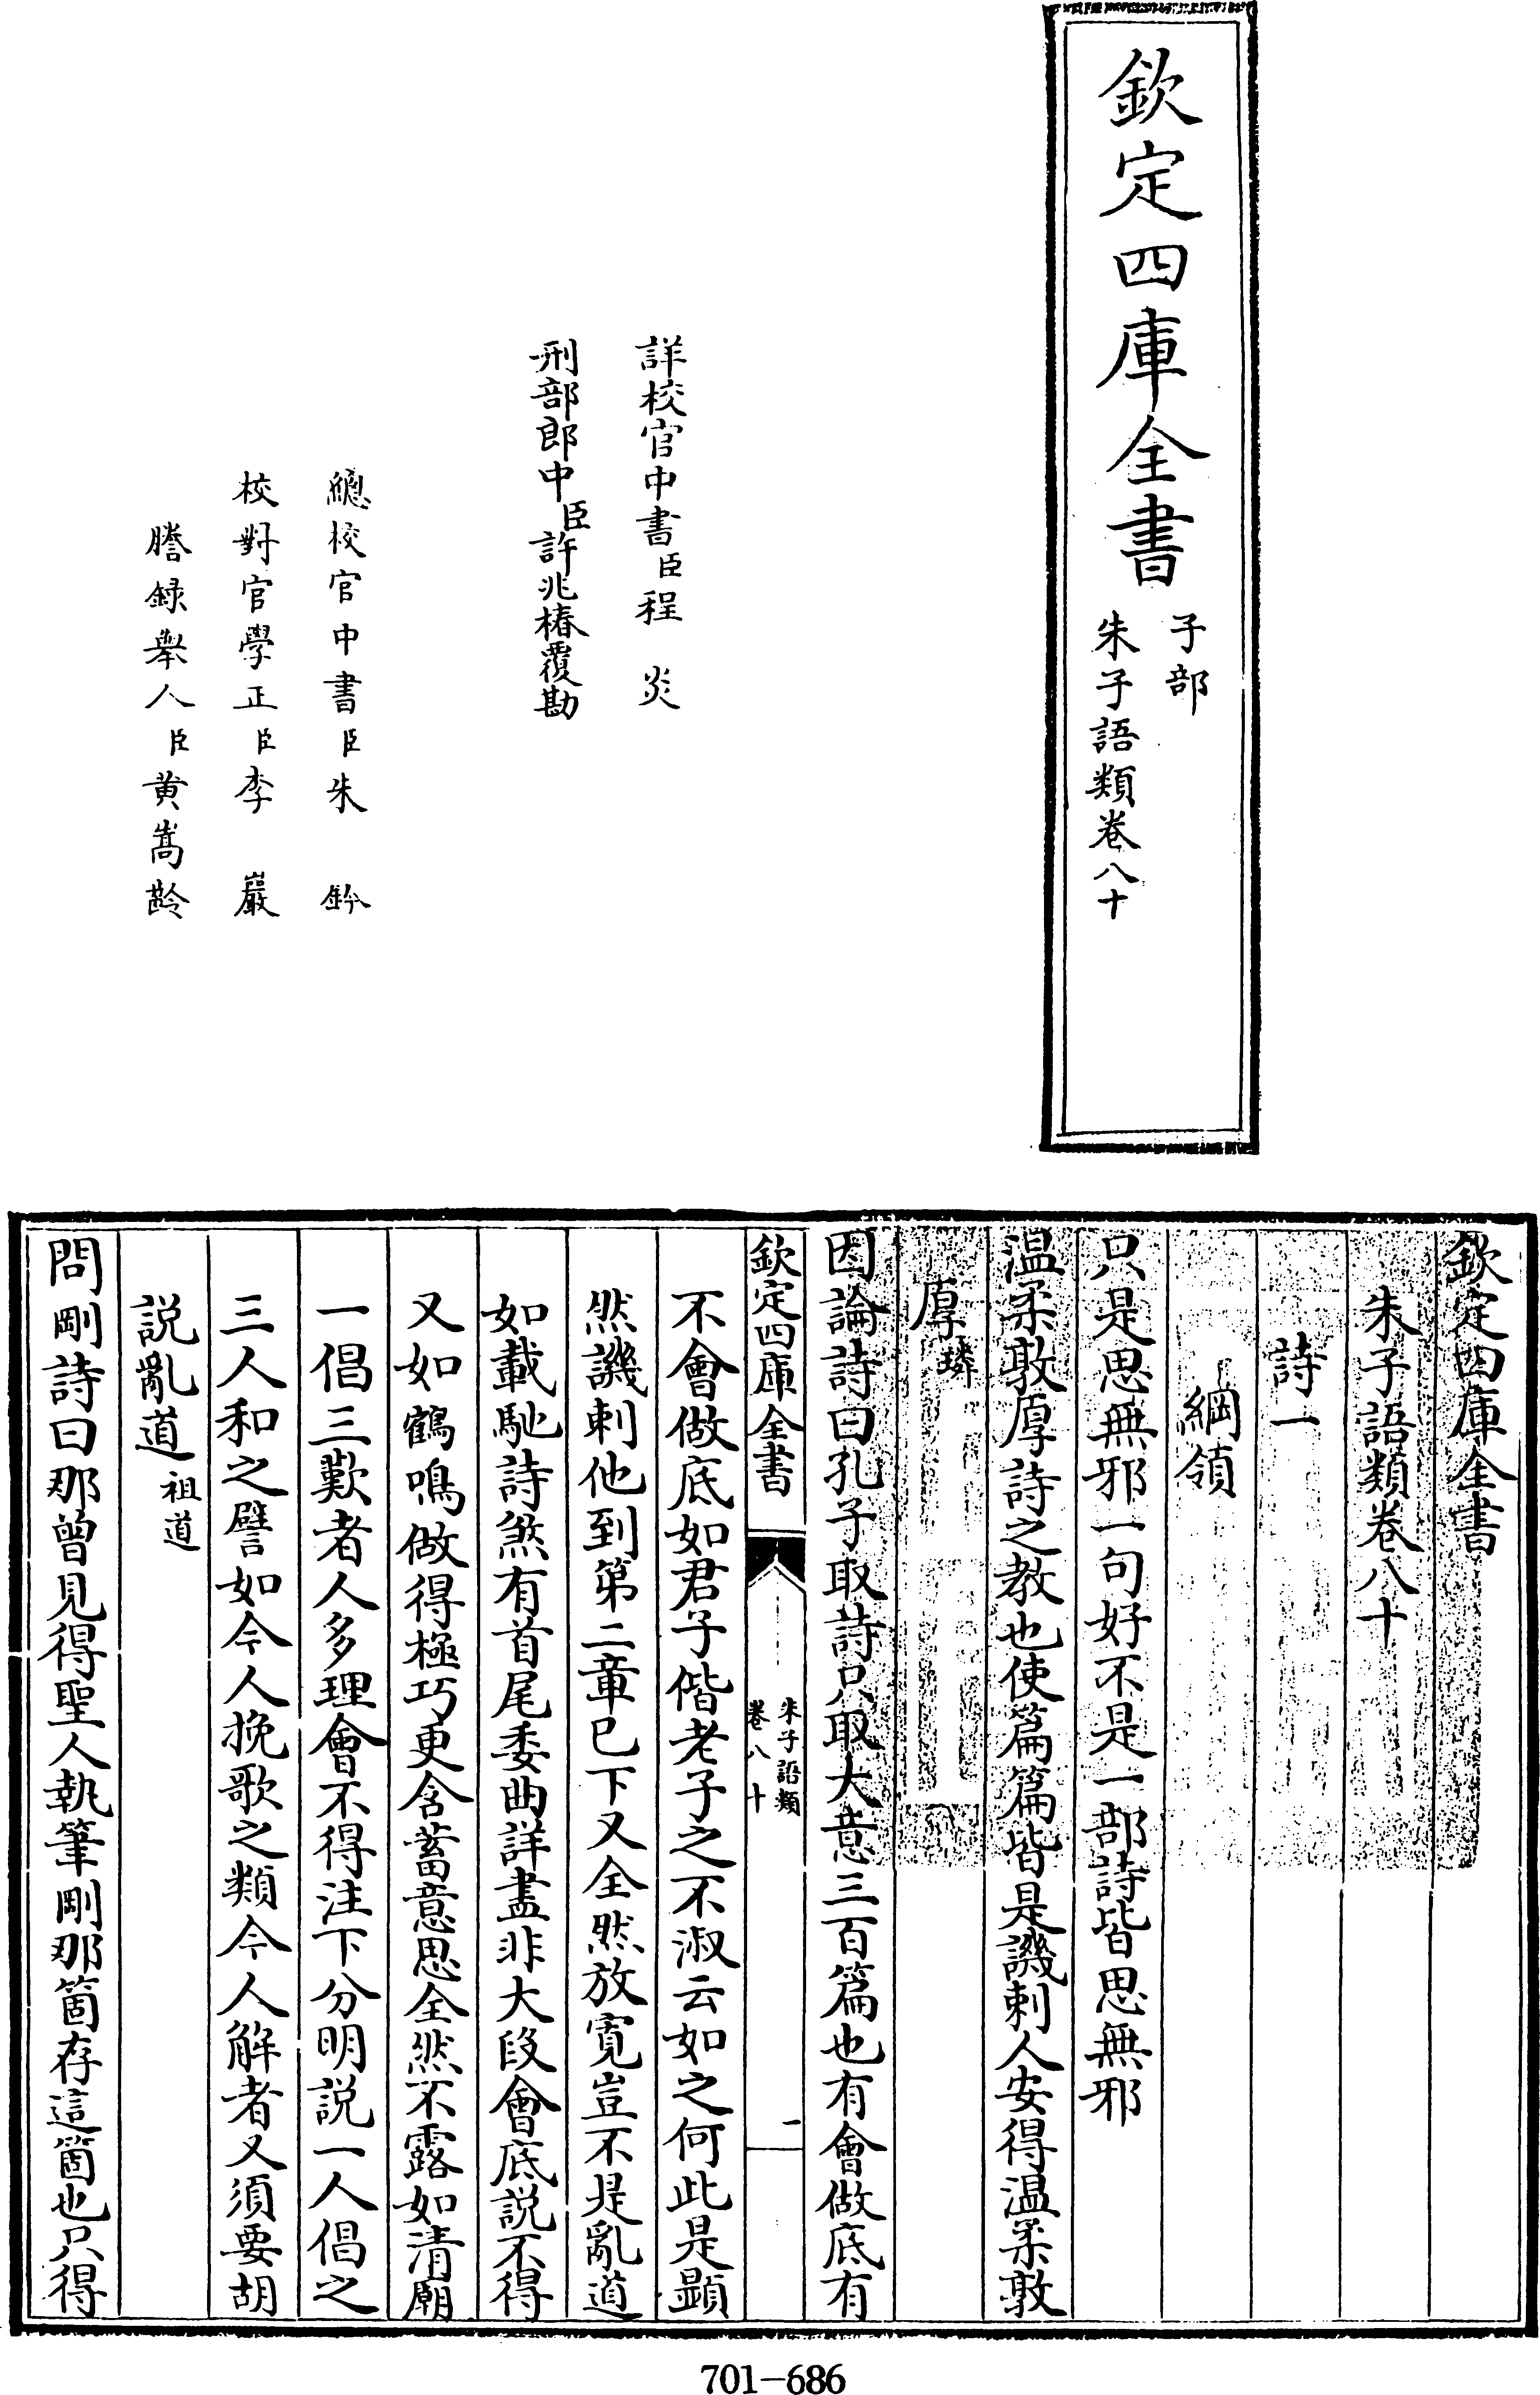 欽定四庫全書
子部
朱子語類卷八十
詳校官中書臣程炎
刑部郎中臣許兆椿覆勘
總校官中書臣朱鈐
校對官學正臣李巖
謄録舉人臣黄嵩齡
欽定四庫全書
朱子語類卷八十
詩一
綱領
只是思無邪一句好不是一部詩皆思無邪
温柔敦厚詩之教也使篇篇皆是譏刺人安得温柔敦
厚璘
因論詩曰孔子取詩只取大意三百篇也有會做底有
欽定四庫全書
朱子語類
卷八十
一
不會做底如君子偕老子之不淑云如之何此是顯
然譏刺他到第二章已下又全然放寛豈不是亂道
如載馳詩煞有首尾委曲詳盡非大段會底説不得
又如鶴鳴做得極巧更含蓄意思全然不露如清廟
一倡三歎者人多理會不得注下分明説一人倡之
三人和之譬如今人挽歌之類今人解者又須要胡
説亂道祖道
問刪詩曰那曾見得聖人執筆刪那箇存這箇也只得
701-686